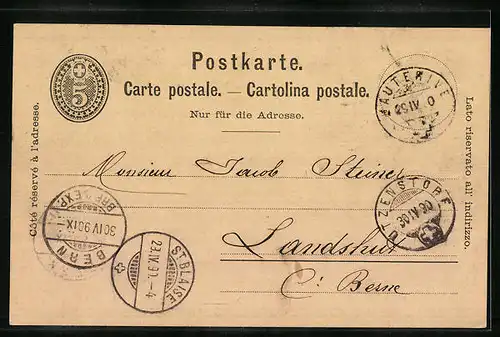 5
Postkarte.
Carte postale. — Cartolina postale.
Nur für die Adresse.
Côté réservé à l'adresse.
Lato riservato all' indirizzo.
HAUTERIVE
29 IV 0
Monsieur Jacob Steiner
Landshut
Ct Berne
UTZENSTORF
30 IV 90
BERN
BRF. EXP.
30 IV 90 IX
ST. BLAISE